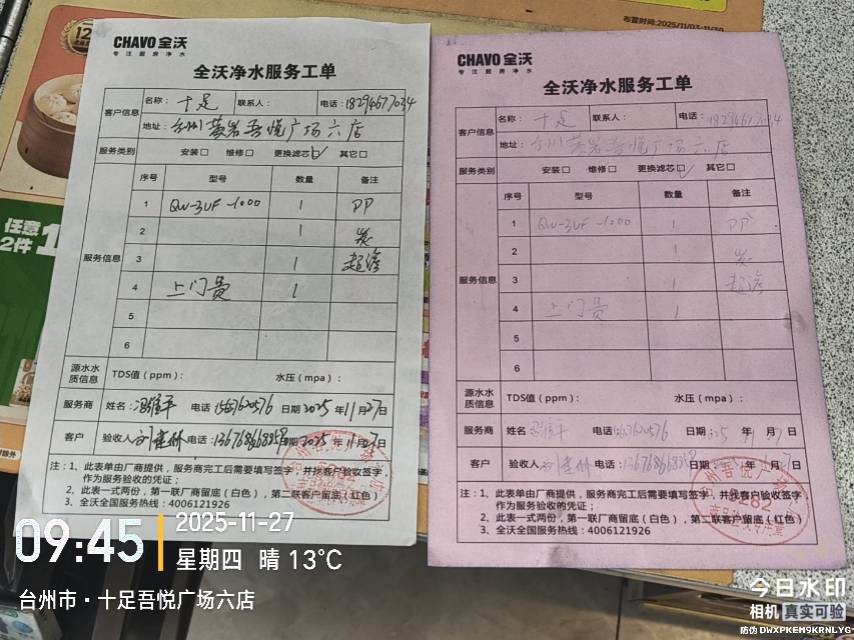 布置时间:2025/11/03-11/30
12
任意
2件 1
CHAVO 全沃
专注厨房净水
全沃净水服务工单
客户信息
名称: 十足 联系人: 电话: 18294677034
地址: 台州黄岩吾悦广场六店
服务类别 安装□ 维修□ 更换滤芯□ 其它□
服务信息
序号 型号 数量 备注
1 QW-3UF-1000 1 PP
2 1 炭
3 1 超滤
4 上门费 1
5
6
源水水质信息 TDS值(ppm): 水压(mpa):
服务商 姓名: 电话 日期 2025 年 11 月 27 日
客户 验收人 电话: 日期 2025 年 11 月 27 日
注:1、此表单由厂商提供,服务商完工后需要填写签字,并找客户验收签字,
作为服务的凭证;
2、此表一式两份,第一联厂商留底(白色),第二联客户留底(红色)
3、全沃全国服务热线:4006121926
CHAVO 全沃
专注厨房净水
全沃净水服务工单
客户信息
名称: 十足 联系人: 电话: 18294677034
地址: 台州黄岩吾悦广场六店
服务类别 安装□ 维修□ 更换滤芯□ 其它□
服务信息
序号 型号 数量 备注
1 QW-3UF-1000 1 PP
2 1 炭
3 1 超滤
4 上门费 1
5
6
源水水质信息 TDS值(ppm): 水压(mpa):
服务商 姓名 电话 日期: 年 月 日
客户 验收人 电话: 日期: 年 月 日
注:1、此表单由厂商提供,服务商完工后需要填写签字,并找客户验收签字,
作为服务的凭证;
2、此表一式两份,第一联厂商留底(白色),第二联客户留底(红色)
3、全沃全国服务热线:4006121926
09:45
2025-11-27
星期四 晴 13°C
台州市·十足吾悦广场六店
今日水印
相机 真实可验
防伪 DWXPKEM9KRNLYG